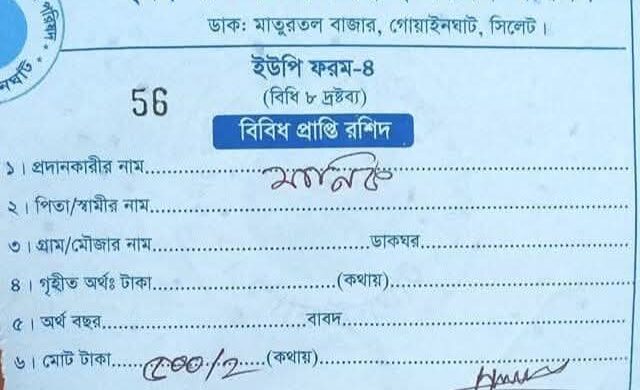 ডাক: মাতুরতল বাজার, গোয়াইনঘাট, সিলেট।
ইউপি ফরম-৪
56
(বিধি ৮ দ্রষ্টব্য)
বিবিধ প্রাপ্তি রশিদ
১। প্রদানকারীর নাম..........মানিক..........
২। পিতা/স্বামীর নাম..........
৩। গ্রাম/মৌজার নাম..........ডাকঘর..........
৪। গৃহীত অর্থঃ টাকা..........(কথায়)..........
৫। অর্থ বছর..........বাবদ..........
৬। মোট টাকা.....৫০০/=.....(কথায়)..........